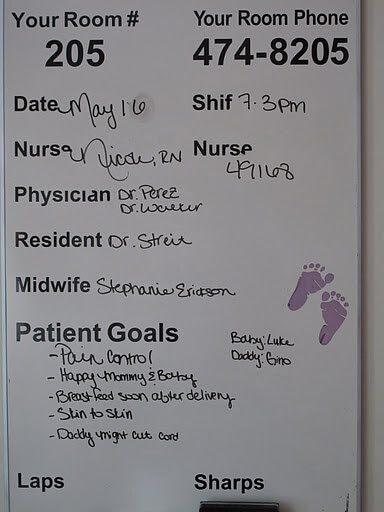 Your Room # Your Room Phone
205 474-8205
Date May 16 Shif 7-3pm
Nurse Nicole, RN Nurse 49168
Physician Dr. Perez
Dr.
Resident Dr. Streit
Midwife Stephanie Erickson
Patient Goals
Baby: Luke
Daddy: Gino
- Pain Control
- Happy Mommy & Baby
- Breastfeed soon after delivery
- Skin to Skin
- Daddy might cut cord
Laps Sharps